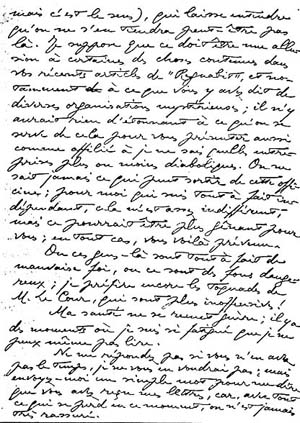 mais c'est le sens), qui laisse entendre
qu'on ne s'en tiendra peut-être pas
là. Je suppose que ce doit être une allu-
sion à certaines des choses contenues dans
vos récents articles de "Regnabit", et no-
tamment à ce que vous y avez dit de
diverses organisations mystérieuses ; il n'y
aurait rien d'étonnant à ce qu'on se
serve de cela pour vous présenter aussi
comme affilié à je ne sais quelles entre-
prises plus ou moins diaboliques. On ne
sait jamais ce qui peut sortir de cette offi-
cine ; pour moi qui suis tout à fait in-
dépendant, cela m'est assez indifférent,
mais ce pourrait être plus gênant pour
vous ; en tout cas, vous voilà prévenu.
Ou ces gens-là sont tout à fait de
mauvaise foi, ou ce sont des fous dange-
reux ; je préfère encore les toquades de
M. Le Cour, qui sont plus inoffensives !
Ma santé ne se remet guère ; il y a
des moments où je suis si fatigué que je ne
peux même pas lire.
Ne me répondez pas si vous n'en avez
pas le temps, je ne vous en voudrai pas ; mais
envoyez-moi un simple mot pour me dire
que vous avez reçu mes lettres, car, avec tout
ce qui se perd en ce moment, on n'est jamais
très rassuré.